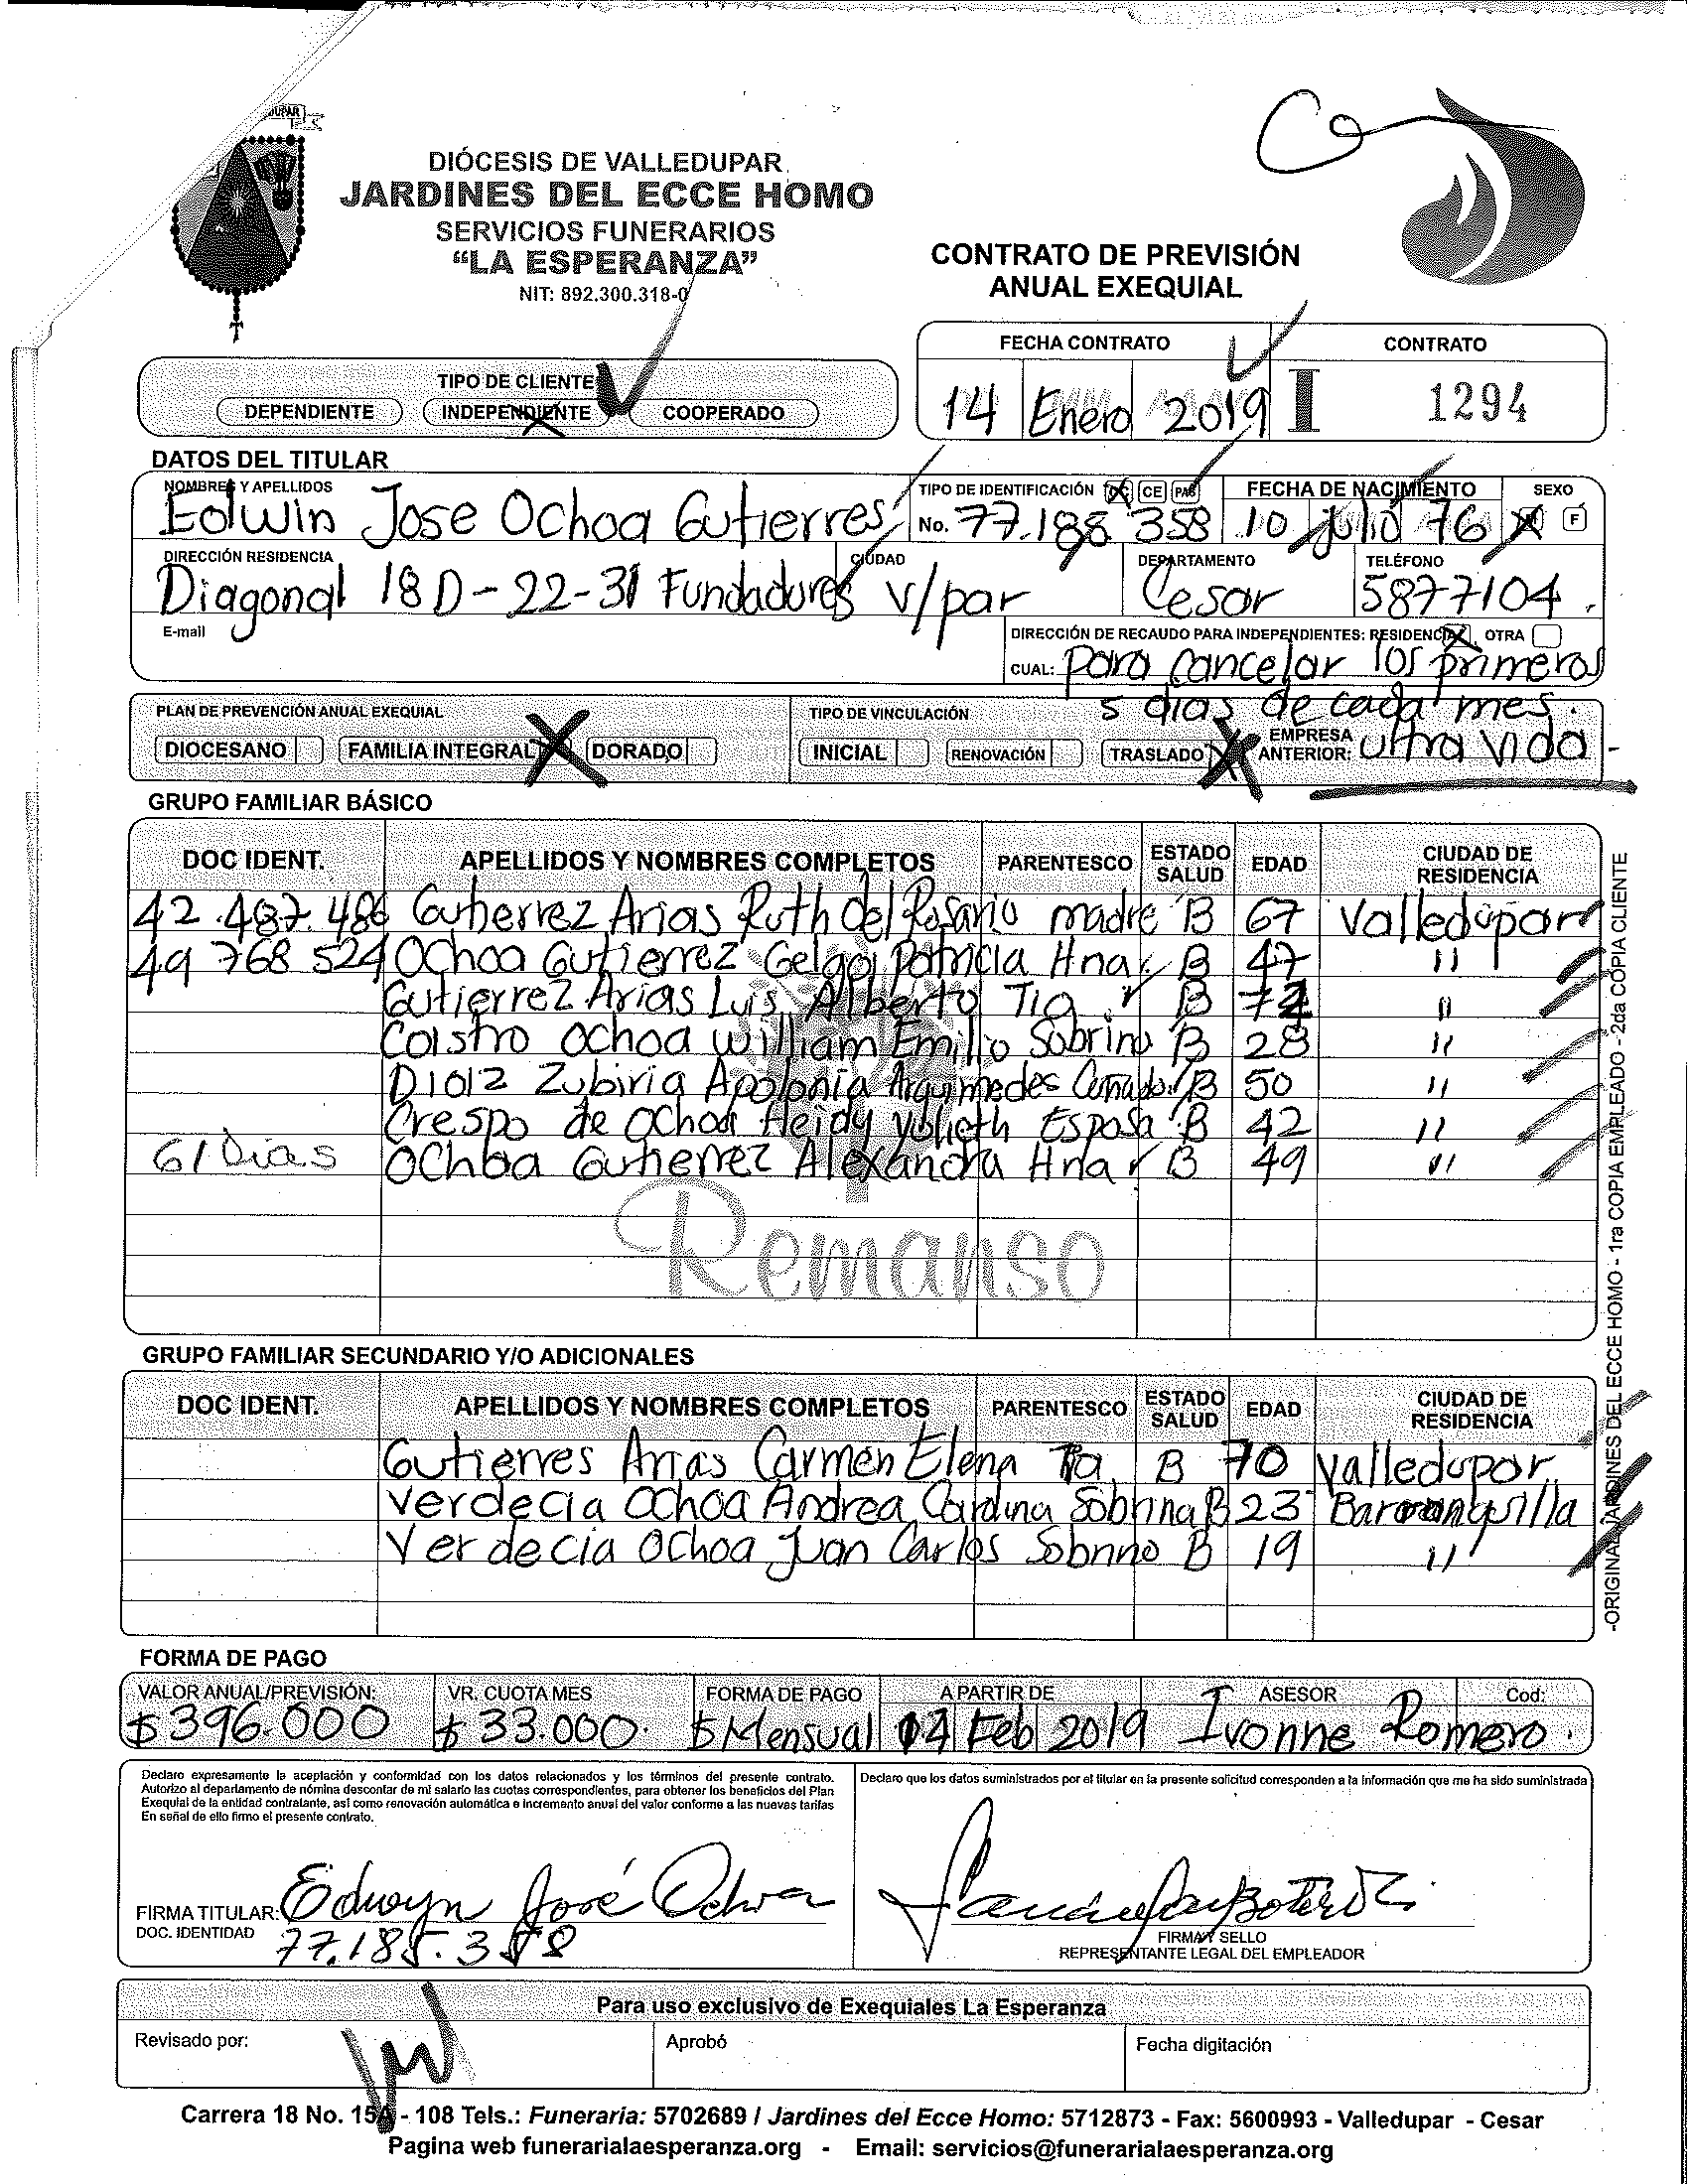 DUPAR
DIÓCESIS DE VALLEDUPAR
JARDINES DEL ECCE HOMO
SERVICIOS FUNERARIOS
"LA ESPERANZA"
NIT: 892.300.318-0
CONTRATO DE PREVISIÓN
ANUAL EXEQUIAL
FECHA CONTRATO CONTRATO
14 Enero 2019 I 1294
TIPO DE CLIENTE
DEPENDIENTE INDEPENDIENTE COOPERADO
DATOS DEL TITULAR
NOMBRES Y APELLIDOS TIPO DE IDENTIFICACIÓN CE PAS FECHA DE NACIMIENTO SEXO
Edwin Jose Ochoa Gutierres No. 77.185 358 10 julio 76 F
DIRECCIÓN RESIDENCIA CIUDAD DEPARTAMENTO TELÉFONO
Diagonal 18 D - 22-31 Fundadores V/par Cesar 5877104.
E-mail DIRECCIÓN DE RECAUDO PARA INDEPENDIENTES: RESIDENCIA OTRA
CUAL: Para cancelar los primeros
5 dias de cada mes.
PLAN DE PREVENCIÓN ANUAL EXEQUIAL TIPO DE VINCULACIÓN
DIOCESANO FAMILIA INTEGRAL DORADO INICIAL RENOVACIÓN TRASLADO EMPRESA ANTERIOR: Ultra Vida -
GRUPO FAMILIAR BÁSICO
DOC IDENT. APELLIDOS Y NOMBRES COMPLETOS PARENTESCO ESTADO SALUD EDAD CIUDAD DE RESIDENCIA
42.487.486 Gutierrez Arias Ruth Del Rosario madre B 67 Valledupar
49 768 524 Ochoa Gutierrez Patricia Hna B 47 "
Gutierrez Arias Luis Alberto Tio B "
Castro Ochoa William Emilio Sobrino B 28 "
Zubiria Apolonia Arquimedes B 50 "
Crespo de Ochoa Heidy Yulieth Esposa B 42 "
61 Dias Ochoa Gutierrez Alexandra Hna B 49 "
Remanso
GRUPO FAMILIAR SECUNDARIO Y/O ADICIONALES
DOC IDENT. APELLIDOS Y NOMBRES COMPLETOS PARENTESCO ESTADO SALUD EDAD CIUDAD DE RESIDENCIA
Gutierres Arias Carmen Elena Tia B 70 Valledupar
Verdecia Ochoa Andrea Carolina Sobrina B 23 Barranquilla
Verdecia Ochoa Juan Carlos Sobrino B 19 "
FORMA DE PAGO
VALOR ANUAL/PREVISIÓN: VR. CUOTA MES FORMA DE PAGO A PARTIR DE ASESOR Cod:
$396.000 $33.000. Mensual 14 Feb 2019 Ivonne Romero.
Declaro expresamente la aceptación y conformidad con los datos relacionados y los términos del presente contrato.
Autorizo al departamento de nómina descontar de mi salario las cuotas correspondientes, para obtener los beneficios del Plan
Exequial de la entidad contratante, así como renovación automática e incremento anual del valor conforme a las nuevas tarifas
En señal de ello firmo el presente contrato.
Declaro que los datos suministrados por el titular en la presente solicitud corresponden a la información que me ha sido suministrada
FIRMA TITULAR: Edwyn José Ochoa
DOC. IDENTIDAD 77.185.358
FIRMA Y SELLO
REPRESENTANTE LEGAL DEL EMPLEADOR
Para uso exclusivo de Exequiales La Esperanza
Revisado por: Aprobó Fecha digitación
Carrera 18 No. 15A - 108 Tels.: Funeraria: 5702689 / Jardines del Ecce Homo: 5712873 - Fax: 5600993 - Valledupar - Cesar
Pagina web funerarialaesperanza.org - Email: servicios@funerarialaesperanza.org
-ORIGINAL JARDINES DEL ECCE HOMO - 1ra COPIA EMPLEADO - 2da COPIA CLIENTE